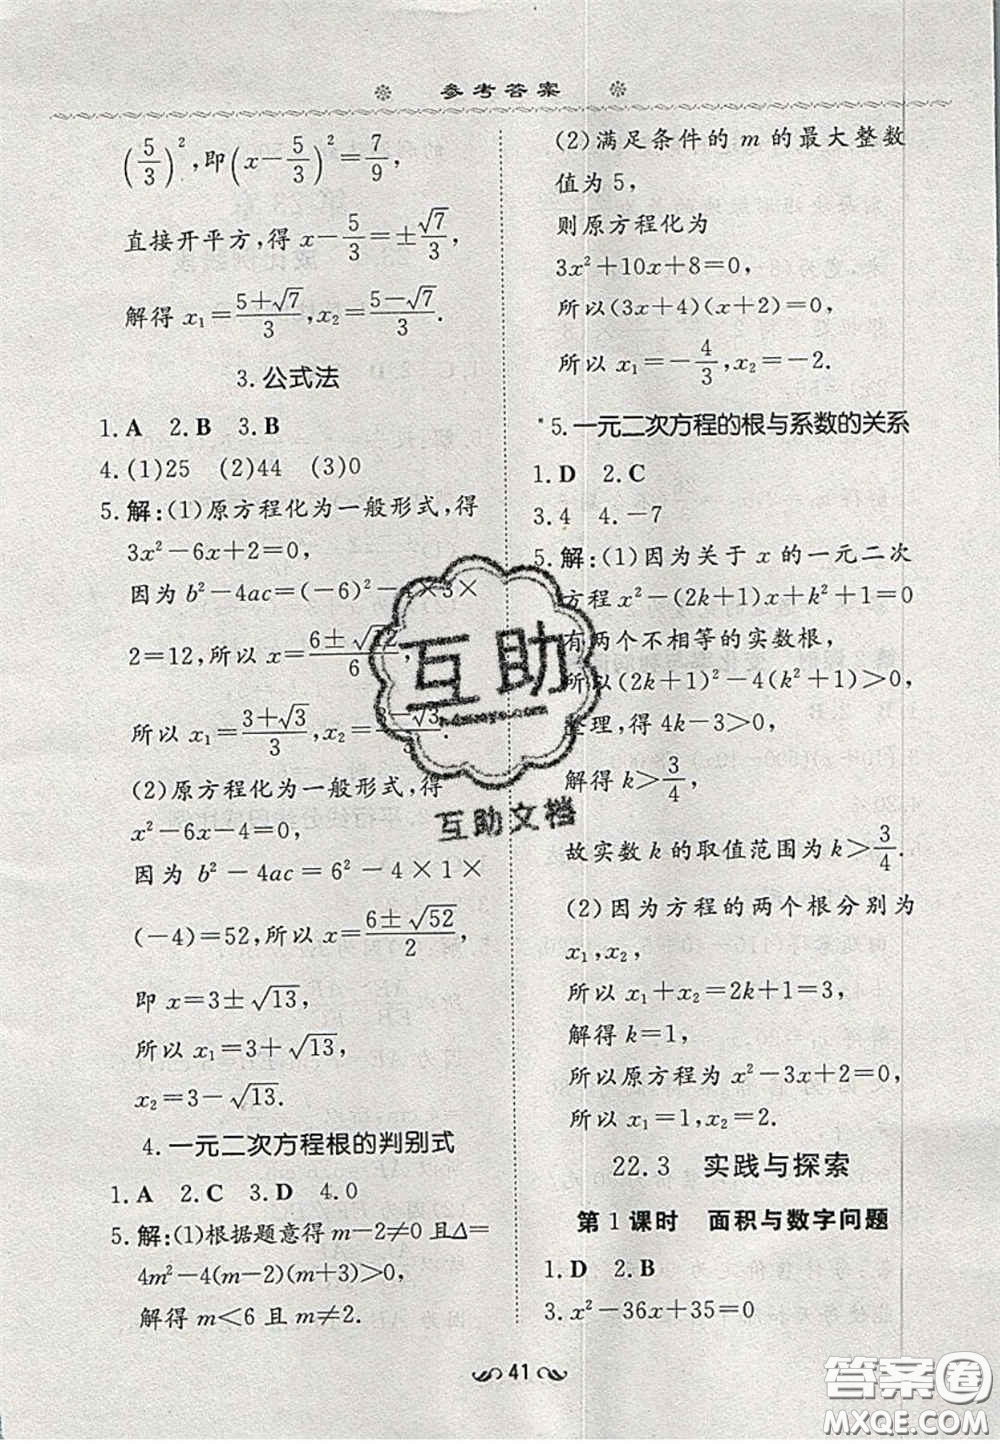 参考答案
(5/3)²,即(x-5/3)²=7/9,
直接开平方,得 x-5/3=±√7/3,
解得 x₁=(5+√7)/3,x₂=(5-√7)/3.
3.公式法
1.A 2.B 3.B
4.(1)25 (2)44 (3)0
5.解:(1)原方程化为一般形式,得
3x²-6x+2=0,
因为 b²-4ac=(-6)²-4×3×
2=12,所以 x=(6±√12)/6,
所以 x₁=(3+√3)/3,x₂=(3-√3)/3.
(2)原方程化为一般形式,得
x²-6x-4=0,
因为 b²-4ac=6²-4×1×
(-4)=52,所以 x=(6±√52)/2,
即 x=3±√13,
所以 x₁=3+√13,
x₂=3-√13.
4.一元二次方程根的判别式
1.A 2.C 3.D 4.0
5.解:(1)根据题意得 m-2≠0 且Δ=
4m²-4(m-2)(m+3)>0,
解得 m<6 且 m≠2.
(2)满足条件的 m 的最大整数
值为 5,
则原方程化为
3x²+10x+8=0,
所以(3x+4)(x+2)=0,
所以 x₁=-4/3,x₂=-2.
*5.一元二次方程的根与系数的关系
1.D 2.C
3.4 4.-7
5.解:(1)因为关于 x 的一元二次
方程 x²-(2k+1)x+k²+1=0
有两个不相等的实数根,
所以(2k+1)²-4(k²+1)>0,
整理,得 4k-3>0,
解得 k>3/4,
故实数 k 的取值范围为 k>3/4.
(2)因为方程的两个根分别为
x₁,x₂,
所以 x₁+x₂=2k+1=3,
解得 k=1,
所以原方程为 x²-3x+2=0,
所以 x₁=1,x₂=2.
22.3 实践与探索
第 1 课时 面积与数字问题
1.D 2.B
3.x²-36x+35=0
41
互助
互助文档
答案圈
MXQE.COM